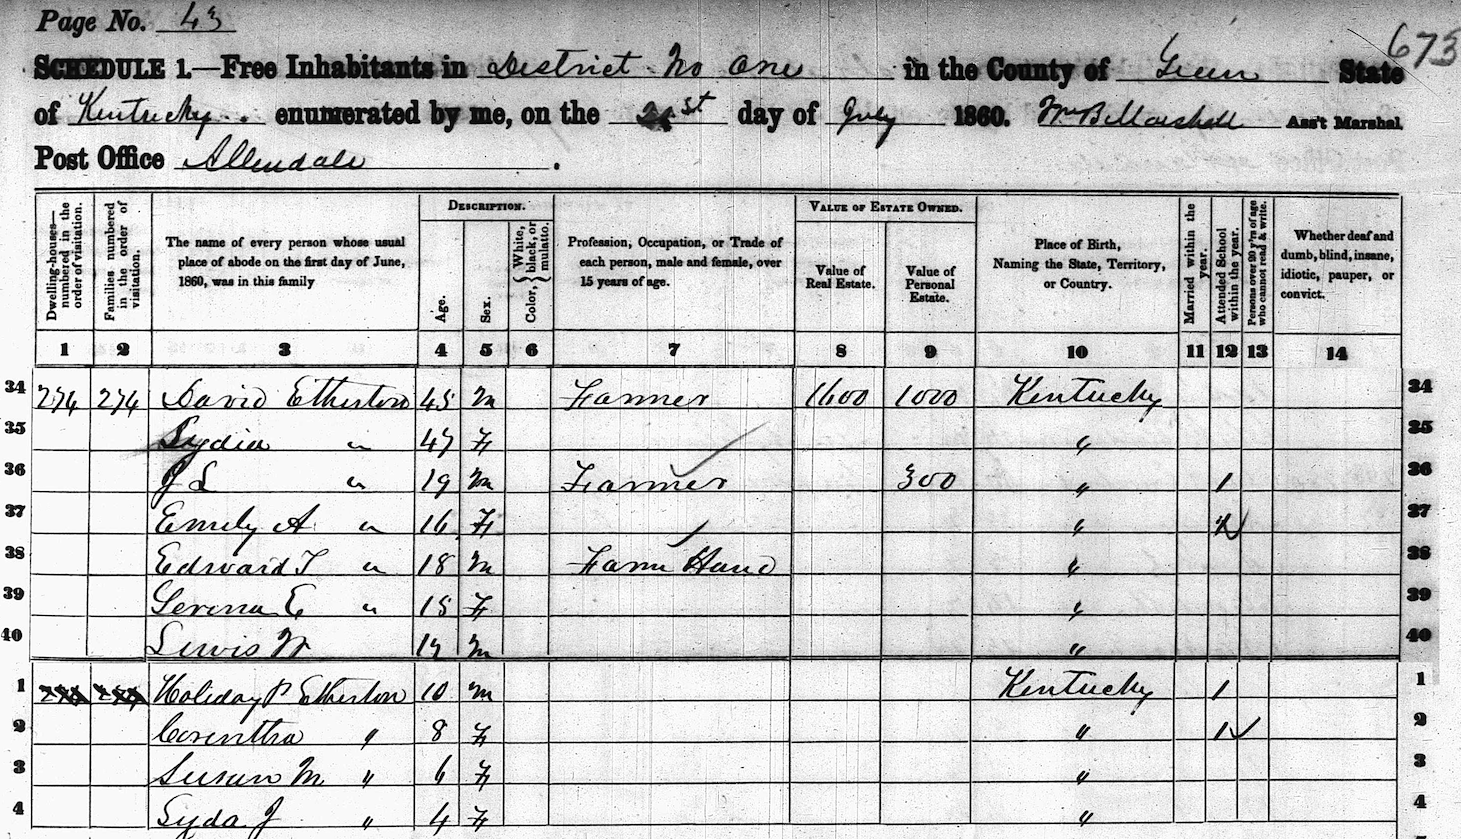 Page No. 43
673
SCHEDULE 1.—Free Inhabitants in District No One in the County of Green State
of Kentucky. enumerated by me, on the 21st day of July 1860. Wm B Marshall Ass't Marshal
Post Office Allendale.
Dwelling-houses—numbered in the order of visitation.
Families numbered in the order of visitation.
The name of every person whose usual place of abode on the first day of June, 1860, was in this family
DESCRIPTION.
Age.
Sex.
Color, { White, black, or mulatto.
Profession, Occupation, or Trade of each person, male and female, over 15 years of age.
VALUE OF ESTATE OWNED.
Value of Real Estate.
Value of Personal Estate.
Place of Birth, Naming the State, Territory, or Country.
Married within the year.
Attended School within the year.
Persons over 20 y'rs of age who cannot read & write.
Whether deaf and dumb, blind, insane, idiotic, pauper, or convict.
1 2 3 4 5 6 7 8 9 10 11 12 13 14
34 274 274 David Etherton 45 M Farmer 1600 1000 Kentucky 34
35 Lydia " 47 F " 35
36 J L " 19 M Farmer 300 " 1 36
37 Emily A " 16 F " 37
38 Edward T " 18 M Farm Hand " 38
39 Serena E " 15 F " 39
40 Lewis W M " 40
1 274 274 Holiday P Etherton 10 M Kentucky 1 1
2 Corentha " 8 F " 1 2
3 Susan M " 6 F " 3
4 Lyda J " 4 F " 4